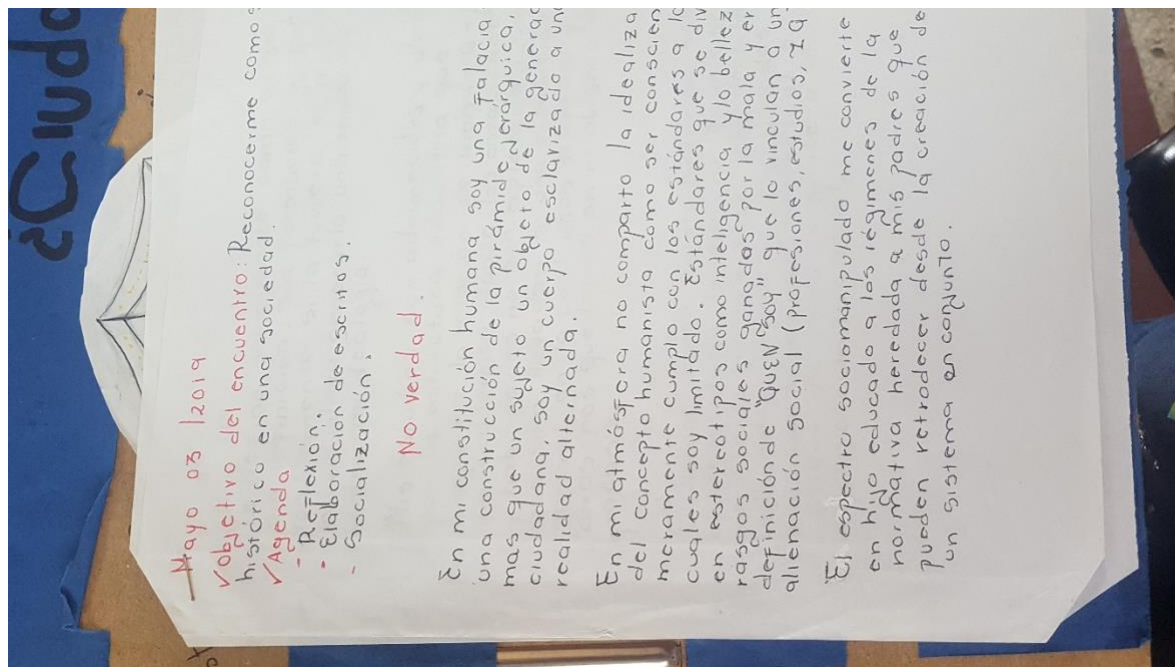 ¿Ciuda
Mayo 03 /2019
√objetivo del encuentro: Reconocerme como s
histórico en una sociedad.
√Agenda
- Reflexión.
- Elaboración de escritos.
- Socialización.
No verdad.
En mi constitución humana soy una falacia
una construcción de la pirámide jerárquica,
mas que un sujeto un objeto de la generac
ciudadana, soy un cuerpo esclavizado a una
realidad alternada.
En mi atmósfera no comparto la idealiza
del concepto humanista como ser conscien
meramente cumplo con los estándares a lo
cuales soy limitado. Estándares que se div
en estereotipos como inteligencia y/o bellez
rasgos sociales ganados por la mala y er
definición de "QUIEN soy" que lo vinculan a un
alienación social (profesiones, estudios,
El espectro sociomanipulado me convierte
en hijo educado a los regímenes de la
normativa heredada a mis padres que
pueden retrodecer desde la creación de
un sistema en conjunto.